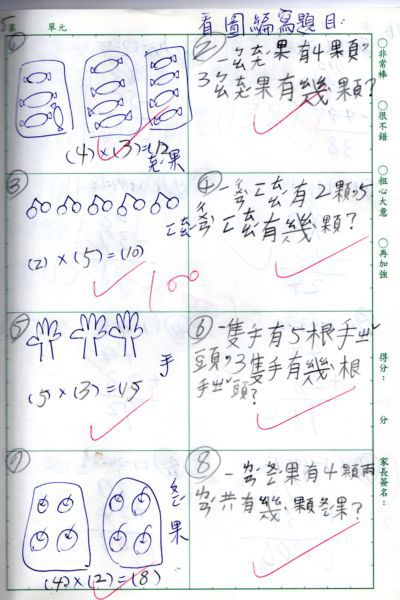 第 單元
看圖編寫題目:
①
(4)×(3)=12
果
②
一 果有4顆,
3 果有幾顆?
③
(2)×(5)=(10)
④
一 有2顆,5
有幾顆?
100
⑤
手
(5)×(3)=15
⑥
一隻手有5根手
頭,3隻手有幾根
手 頭?
⑦
果
(4)×(2)=(8)
⑧
一 果有4顆兩
共有幾顆 果?
○非常棒
○很不錯
○粗心大意
○再加強
得分: 分
家長簽名: